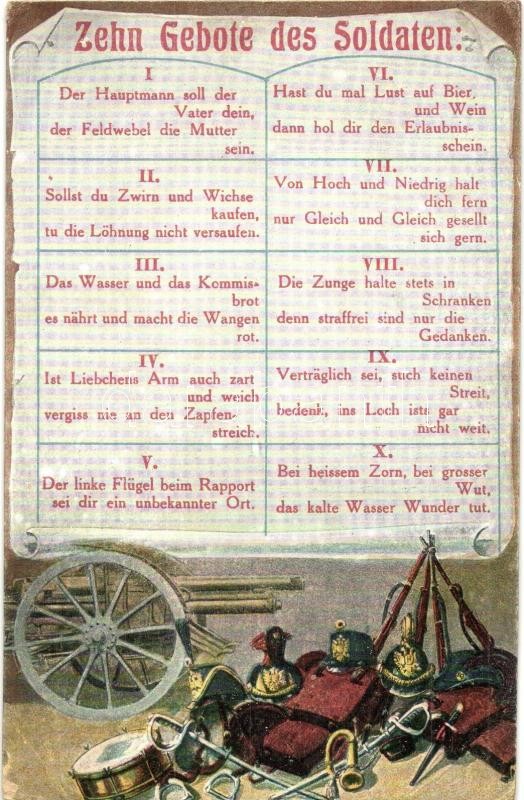 Zehn Gebote des Soldaten:
I
Der Hauptmann soll der
Vater dein,
der Feldwebel die Mutter
sein.
II.
Sollst du Zwirn und Wichse
kaufen,
tu die Löhnung nicht versaufen.
III.
Das Wasser und das Kommis-
brot
es nährt und macht die Wangen
rot.
IV.
Ist Liebchens Arm auch zart
und weich
vergiss nie an den Zapfen-
streich.
V.
Der linke Flügel beim Rapport
sei dir ein unbekannter Ort.
VI.
Hast du mal Lust auf Bier,
und Wein
dann hol dir den Erlaubnis-
schein.
VII.
Von Hoch und Niedrig halt
dich fern
nur Gleich und Gleich gesellt
sich gern.
VIII.
Die Zunge halte stets in
Schranken
denn straffrei sind nur die
Gedanken.
IX.
Verträglich sei, such keinen
Streit,
bedenk, ins Loch ists gar
nicht weit.
X.
Bei heissem Zorn, bei grosser
Wut,
das kalte Wasser Wunder tut.